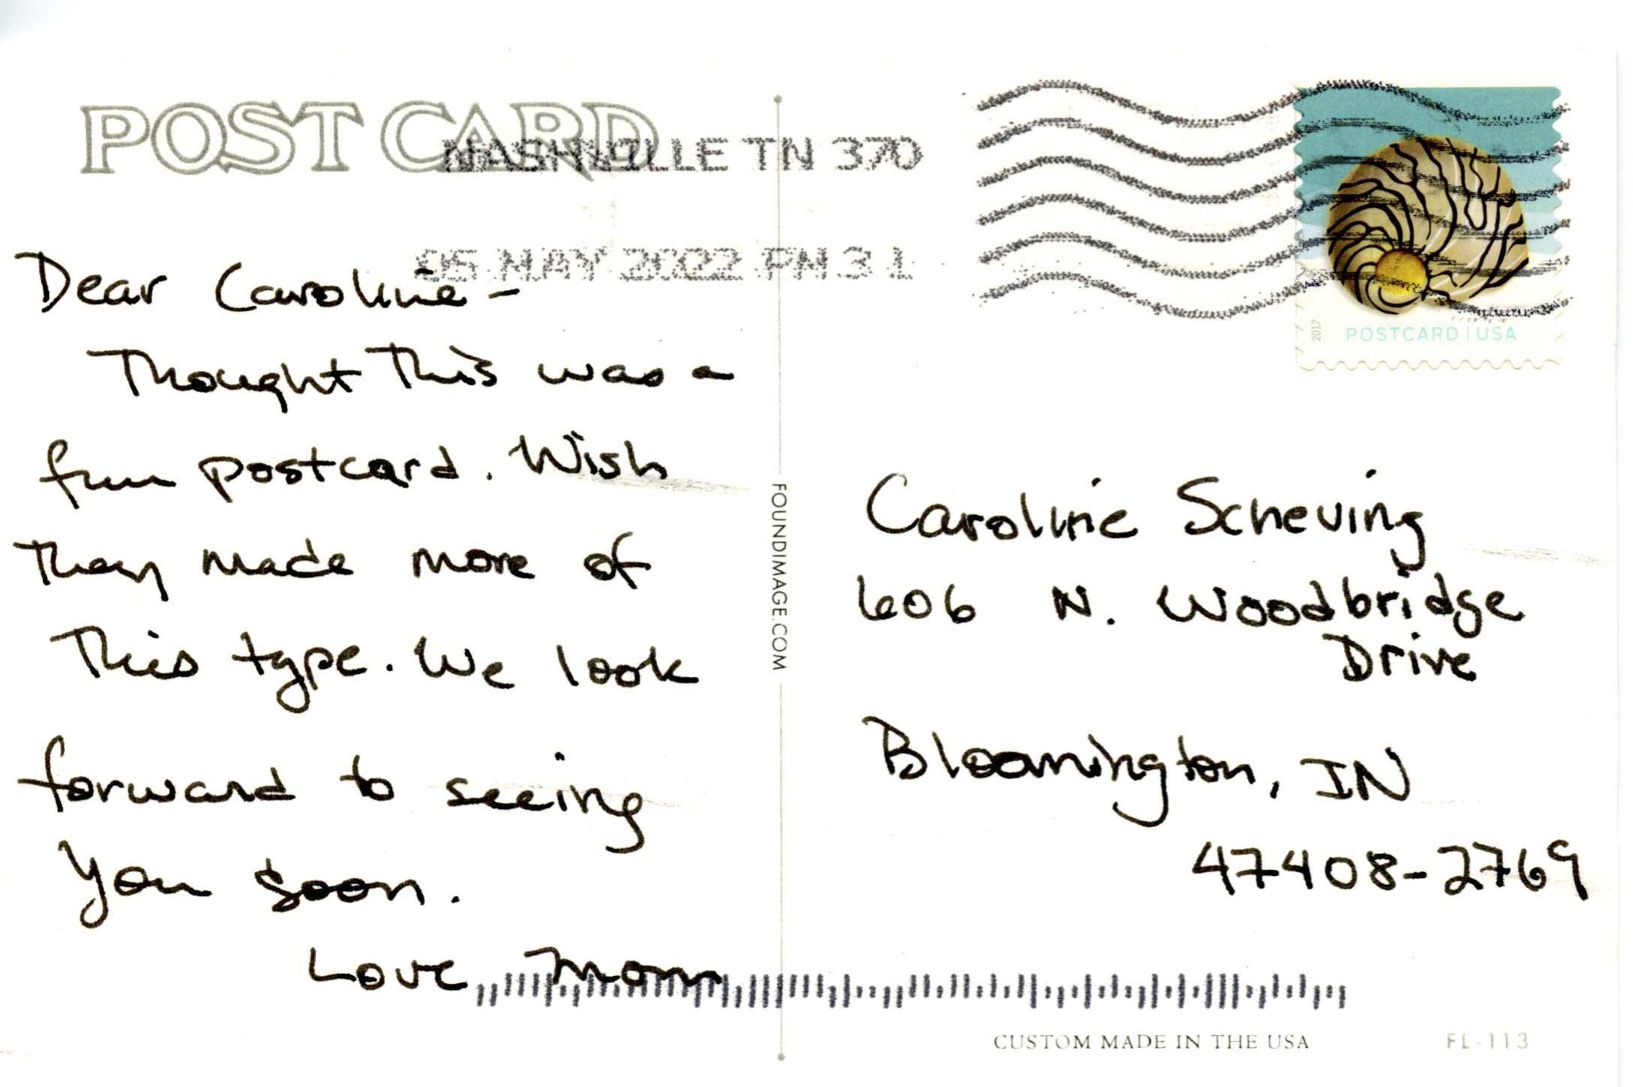 POST CARD
NASHVILLE TN 370
05 MAY 2022 PM 3 L
Dear Caroline -
Thought This was a
fun postcard. Wish
They made more of
This type. We look
forward to seeing
you soon.
Love Mom
FOUNDIMAGE.COM
2017
POSTCARD | USA
Caroline Scheving
606 N. Woodbridge
Drive
Bloomington, IN
47408-2769
CUSTOM MADE IN THE USA
FL-113